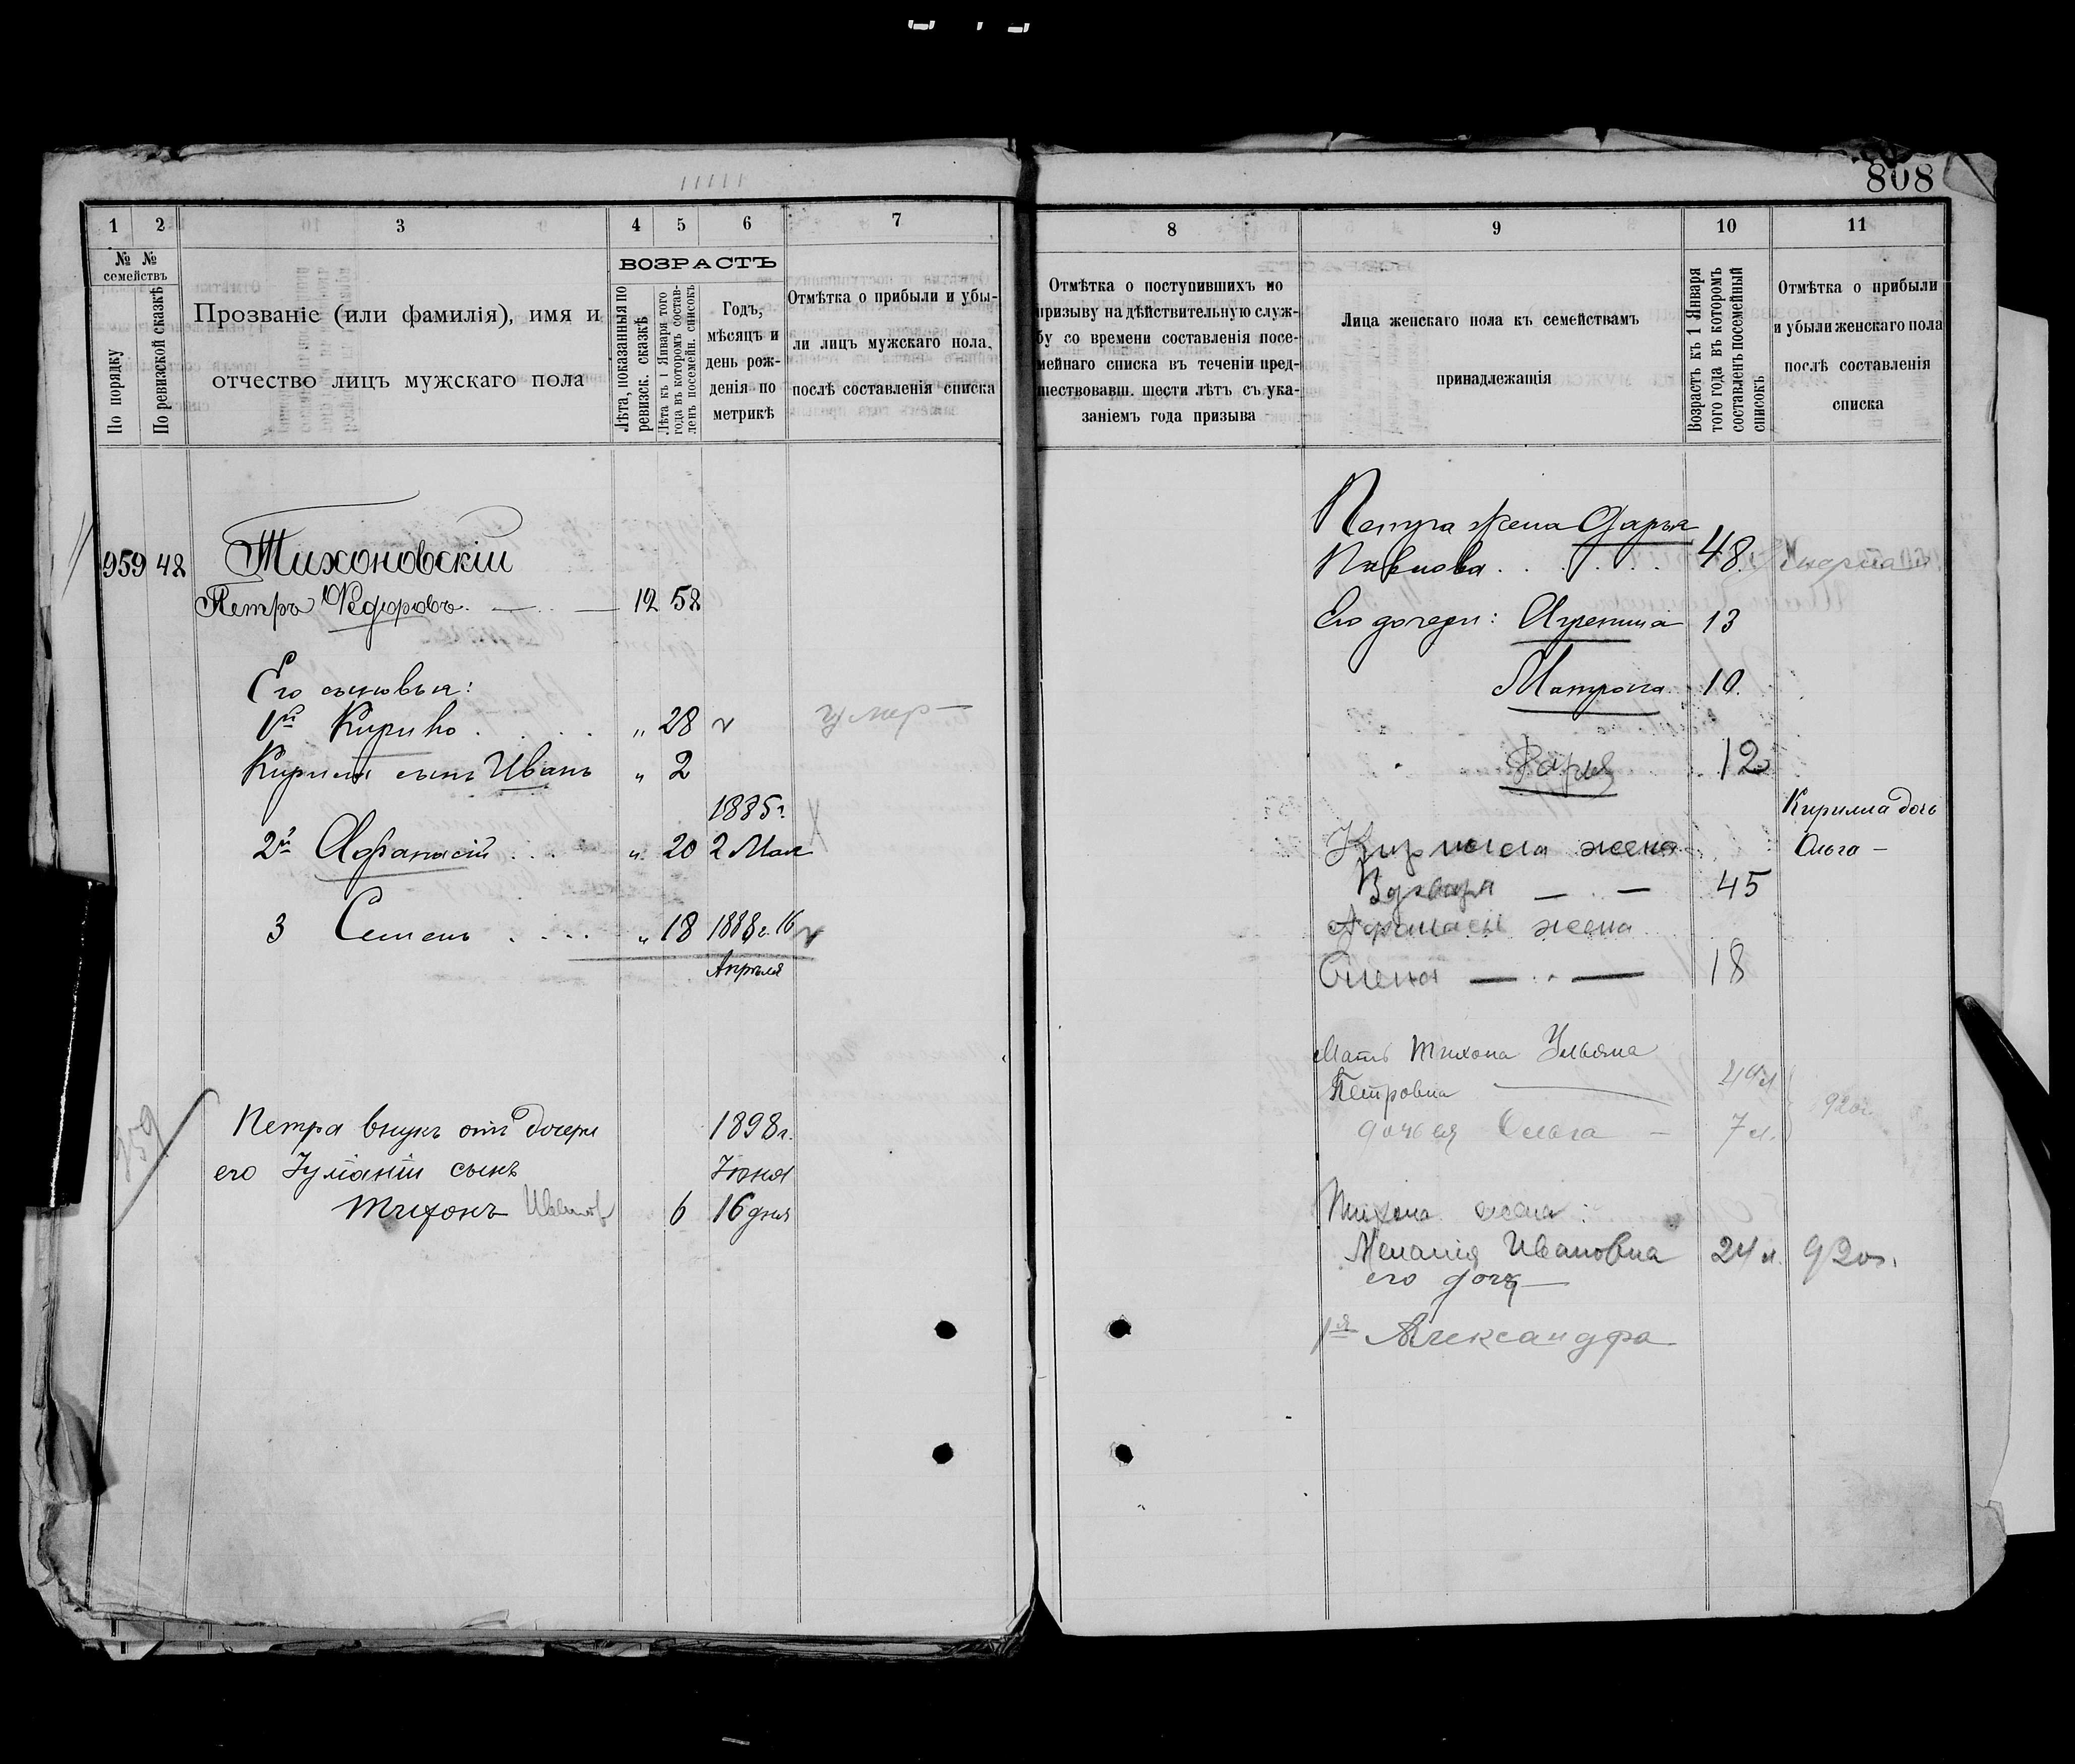 808
1 2 3 4 5 6 7
№ № семействъ
По порядку
По ревизской сказкѣ
Прозваніе (или фамилія), имя и
отчество лицъ мужскаго пола
ВОЗРАСТЪ
Лѣта, показанныя по
ревизск. сказкѣ
Лѣта къ 1 Января того
года въ которомъ состав-
ленъ посемейн. списокъ
Годъ,
мѣсяцъ и
день рож-
денія по
метрикѣ
Отмѣтка о прибыли и убы-
ли лицъ мужскаго пола,
послѣ составленія списка
959 48 Тихоновскій
Петръ Федоровъ. 12 58
Его сыновья:
1й Кирило „ 28
умер
Кирилы сынъ Иванъ „ 2
1885г.
2й Афанасій „ 20 2 Мая
3 Семенъ „ 18 1888г. 16
Апрѣля
Петра внукъ отъ дочери 1898г.
его Іуліаніи сынъ Іюня
Тихонъ Иванов 6 16 дня
8 9 10 11
Отмѣтка о поступившихъ по
призыву на дѣйствительную служ-
бу со времени составленія посе-
мейнаго списка въ теченіи пред-
шествовавш. шести лѣтъ съ ука-
заніемъ года призыва
Лица женскаго пола къ семействамъ
принадлежащія
Возрастъ къ 1 Января
того года въ которомъ
составленъ посемейный
списокъ
Отмѣтка о прибыли
и убыли женскаго пола
послѣ составленія
списка
Петра жена Дарья
Павлова 48.
Его дочери: Агрепина 13
Матрона 10.
Дарья 12
Кирилла дочь
Ольга —
Кирилла жена
Варвара — 45
Афанасія жена
Олена — 18
Мать Тихона Ульяна
Петровна
920г.
дочь ея Ольга — 7 л.
Тихона жена:
Меланія Ивановна 24 л. 920г.
его дочь
1я Александра